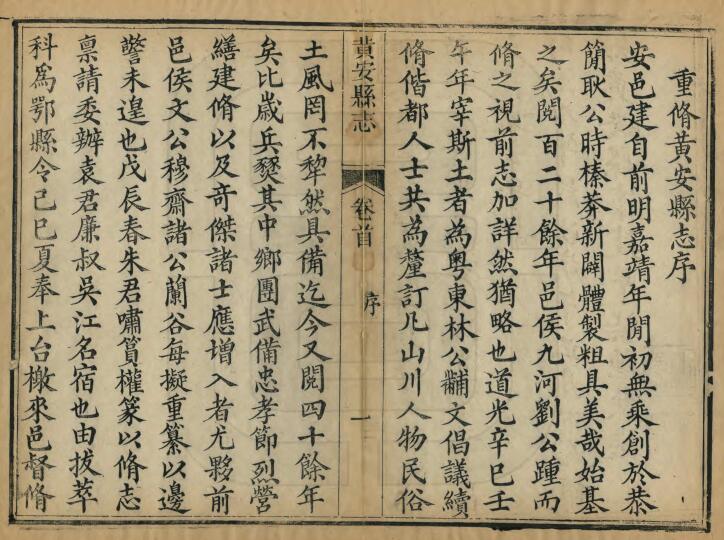 重脩黃安縣志序
安邑建自前明嘉靖年閒初無乘創於恭
簡耿公時榛莽新闢體製粗具美哉始基
之矣閱百二十餘年邑侯九河劉公踵而
脩之視前志加詳然猶略也道光辛巳壬
午年宰斯土者為粵東林公黼文倡議續
脩偕都人士共為釐訂凡山川人物民俗
黃安縣志 卷首 序 一
土風罔不犂然具備迄今又閱四十餘年
矣比歲兵燹其中鄉團武備忠孝節烈營
繕建脩以及奇傑諸士應增入者尤夥前
邑侯文公穆齋諸公蘭谷每擬重纂以邊
警未遑也戊辰春朱君嘯篔權篆以脩志
稟請委辦袁君廉叔吳江名宿也由拔萃
科為鄂縣令己巳夏奉上台檄來邑督脩